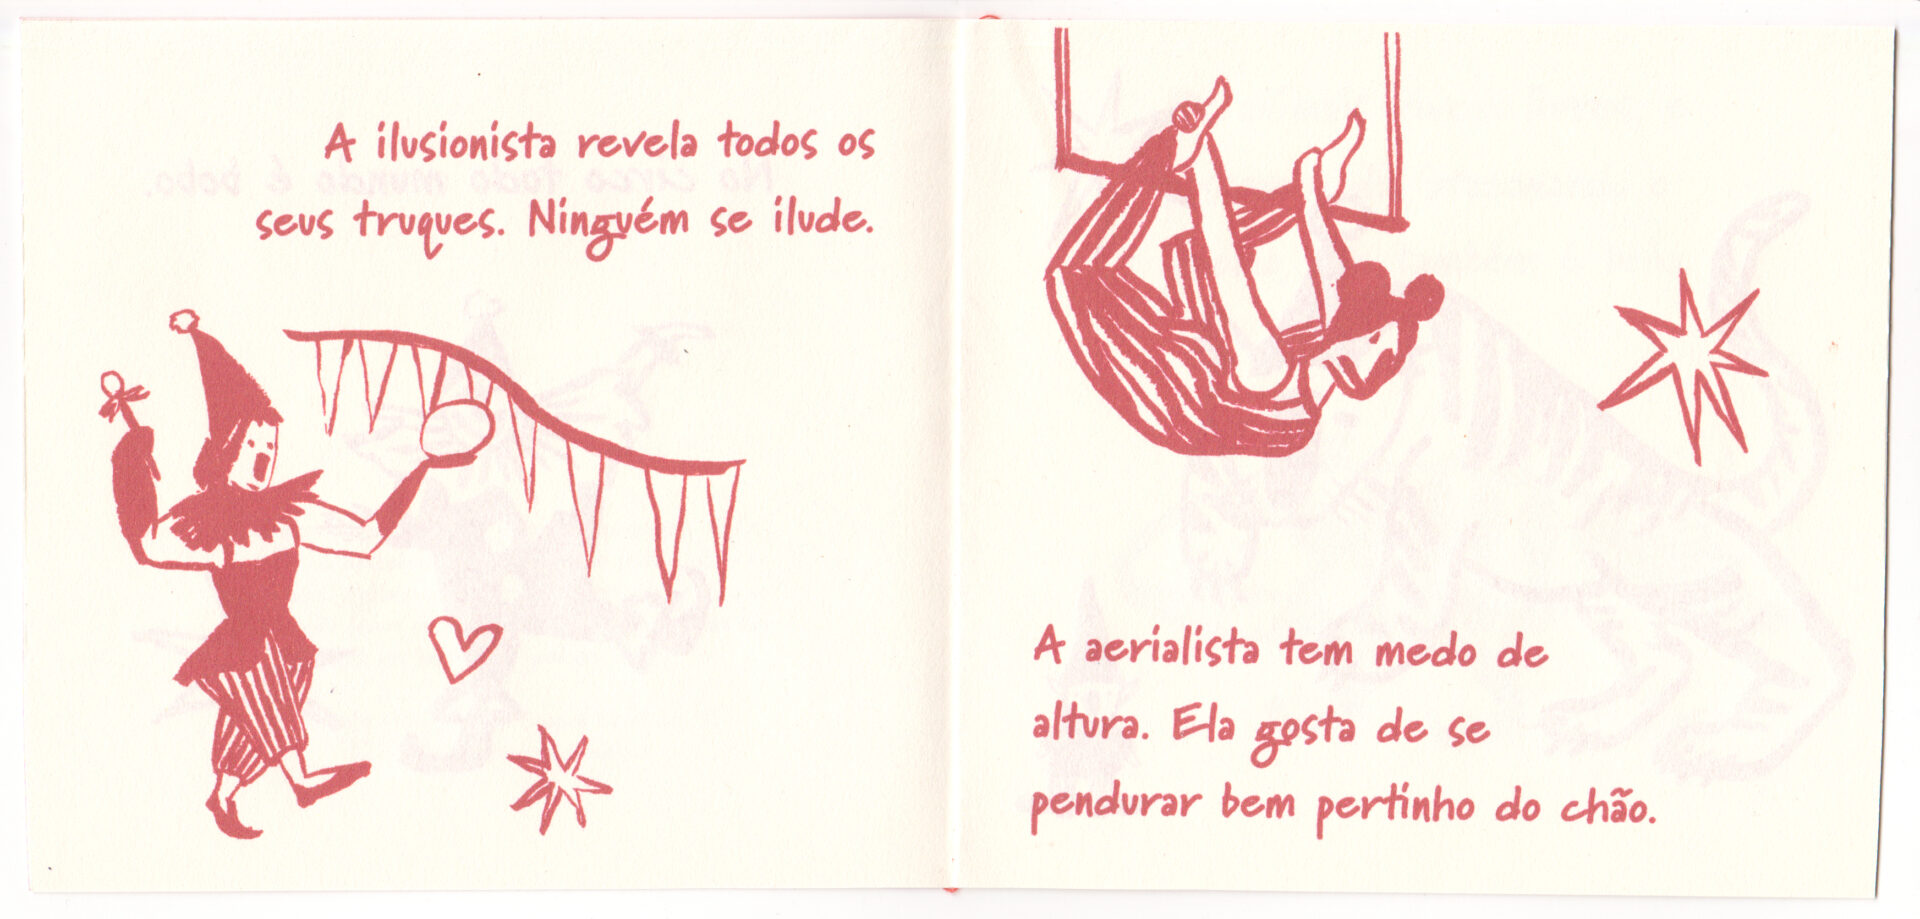 A ilusionista revela todos os
seus truques. Ninguém se ilude.
A aerialista tem medo de
altura. Ela gosta de se
pendurar bem pertinho do chão.